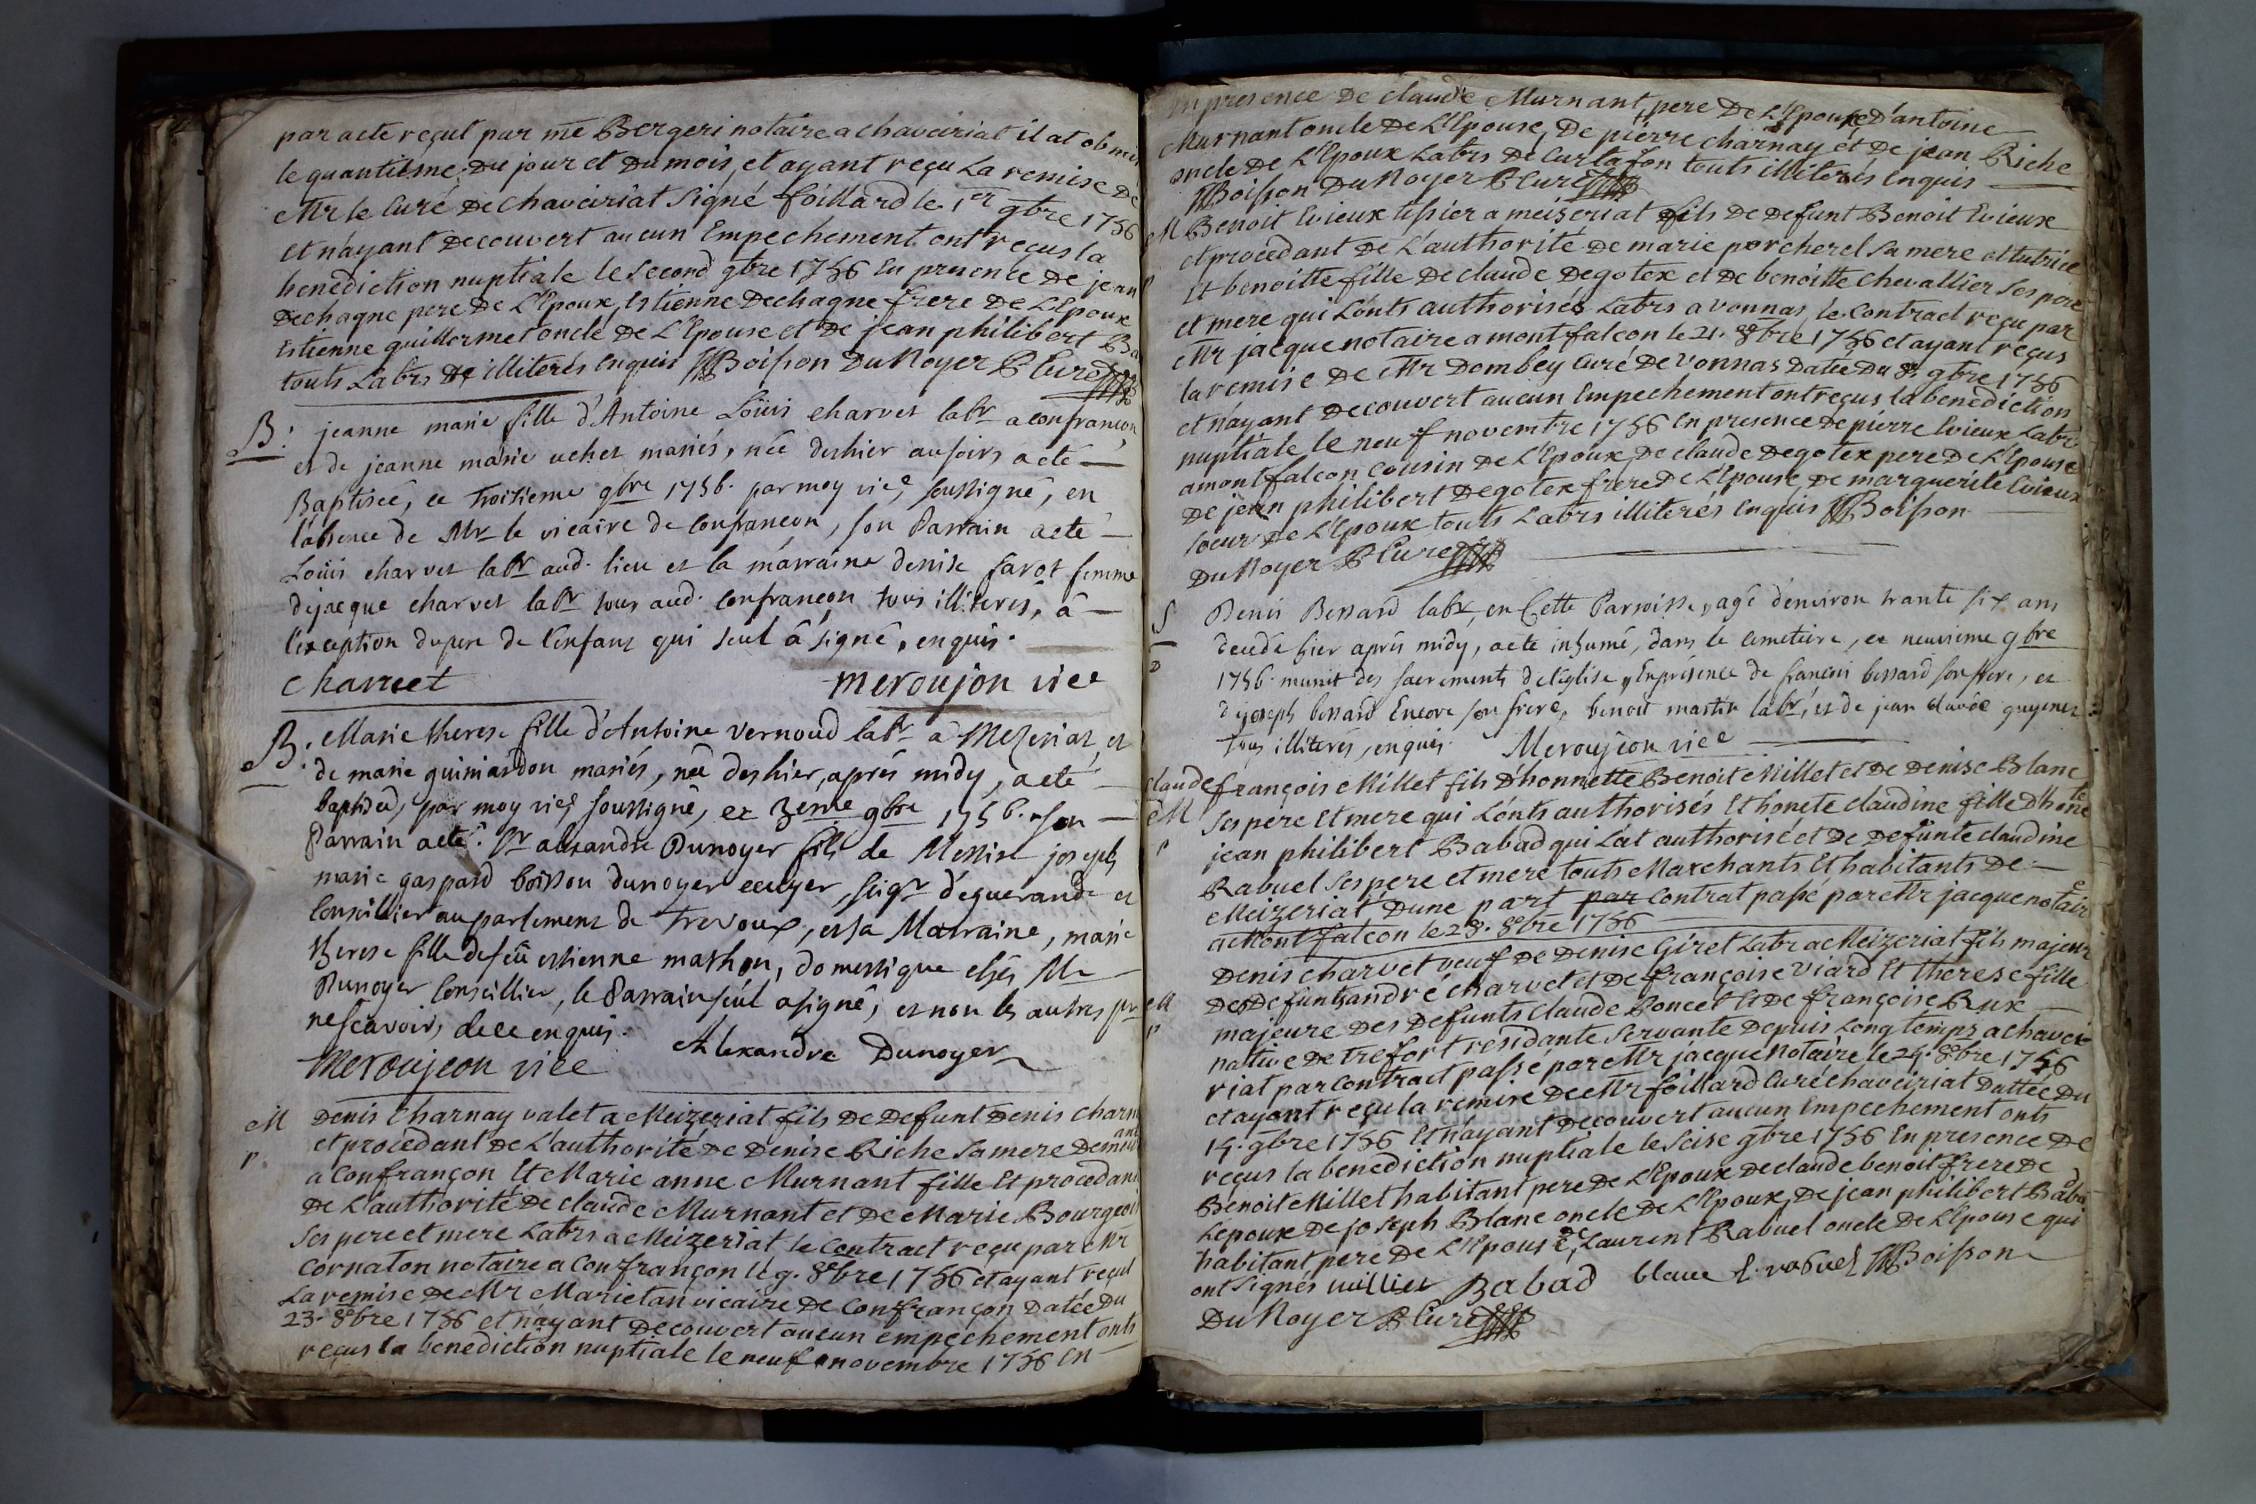 par acte reçut par me Bergeri notaire a chaveiriat il at obmis
le quantième du jour et du mois, et ayant reçu La remise de
Mr le Curé de chaveiriat signé foillard le 1er gbre 1756
et n'ayant decouvert aucun Empechement ont reçus la
benediction nuptiale le second gbre 1756 En presence de jean
Dechagne pere de L'Epoux, Estienne Dechagne frere de L'Epoux
Estienne guillermet oncle de L'Epouse et de jean philibert Ba
touts Labrs de illiterés Enquis Boisson Du Noyer Curé
B: jeanne marie fille d'Antoine Loüis charvet labr a confrancon
et de jeanne marie uchet mariés, née deshier au soir, a eté
Baptiseé, ce troisieme gbre 1756. par moy vice soussigné, en
l'absence de Mr le vicaire de confrancon, son Parrain a eté
Loüis charvet labr aud. lieu et la marraine denise farot femme
de jacque charvet labr tous aud. confrancon tous illiterés, â
l'exception du pere de l'enfant qui seul â signé, enquis.
Charvet meroujon vice
B: Marie therese fille d'Antoine Vernoud labr a Meseriat, et
de marie guiniardon mariés, née deshier, aprés midy, a eté
baptiseé, par moy vice soussigné, ce 3eme gbre 1756. son
Parrain a eté Sr alexandre Dunoyer fils de Messire joseph
marie gaspard boisson dunoyer ecuyer, seigr d'eguerande et
Conseillier au parlement de Trevoux, et sa Marraine, marie
therese fille de feü estienne mathon, domestique chés Mr
Dunoyer Conseillier, le Parrain seul a signé, et non les autres pr
ne scavoir, de ce enquis. Alexandre Dunoyer
Meroujeon vice
M Denis Charnay valet a Meizeriat fils de Defunt Denis charnay
r et procedant de L'authorité de Denise Riche sa mere Demeurant
a Confrançon Et Marie anne Murnant fille Et procedant
de L'authorité de claude Murnant et de Marie Bourgeois
ses pere et mere Labrs a Meizeriat le Contract reçu par Mr
Cornaton notaire a Confrançon le 9. 8bre 1756 et ayant reçut
La remise de Mr Marietan vicaire de Confrançon Datée Du
23. 8bre 1756 et n'ayant Decouvert aucun empechement onts
reçus la benediction nuptiale le neuf novembre 1756 En
En presence de claude Murnant pere de L'Epouse d'antoine
Murnant oncle de L'Epouse, De pierre charnay et de jean Riche
oncle de L'Epoux Labrs de Curtafon touts illiterés Enquis
Boisson Du Noyer Curé
M Benoit Evieux tissier a meizeriat fils de defunt Benoit Evieux
et procedant de L'authorité de marie porcherel sa mere et tutrice
r Et benoitte fille de claude Degotex et de benoitte chevallier ses pere
et mere qui L'onts authorisée Labrs a vonnas, le Contract reçu par
Mr jacque notaire a montfalcon le 21. 8bre 1756 et ayant reçus
la remise de Mr Dombey Curé de Vonnas Datée Du 8. gbre 1756
et n'ayant Decouvert aucun Empechement ont reçus la benediction
nuptiale le neuf novembre 1756 En presence de pierre Evieux Labr
a montfalcon cousin de L'Epoux, De claude Degotex pere de L'Epouse
De jean philibert Degotex frere de L'Epouse, De marguerite Evieux
soeur de L'Epoux touts Labrs illiterés Enquis Boisson
Du Noyer Curé
S Denis Bessard labr, en Cette Parroisse, agé d'environ trante six ans
decedé hier aprés midy, a eté inhumé, dans le cemetiere, ce neuvieme gbre
1756. munit des sacrements de l'église, En présence de francois bessard son frere, et
de joseph bessard Encore son frere, benoit martin labr, et de jean claude guyenet
tous illiterés, enquis. Meroujeon vice
claude françois Millet fils D'honnette Benoit Millet et de Denise Blanc
M ses pere Et mere qui L'onts authorisés Et honete claudine fille D'honete
r jean philibert Babad qui L'at authorisé et de Defunte claudine
Rabuel ses pere et mere touts Marchants Et habitants de
Meizeriat, Dune part par Contrat passé par Mr jacque notaire
a Montfalcon le 23. 8bre 1756
Denis charvet veuf de Denise Giret Labr a Meizeriat fils majeur
M des Defunts andré charvet et de françoise Viard Et therese fille
r majeure Des Defunts claude Poncet Et de françoise Rux
native de trefort rendante servante Depuis Long temps a chavei
riat par Contract passé par Mr jacque Notaire le 24. 8bre 1756
et ayant reçu la remise de Mr foillard Curé chaveiriat Dattée Du
14. gbre 1756 Et n'ayant Decouvert aucun Empechement onts
reçus la benediction nuptiale le seise gbre 1756 En presence De
Benoit Millet habitant pere de L'Epoux De claude benoit frere de
L'epoux de joseph Blanc oncle de L'Epoux, De jean philibert Babad
habitant pere de L'Epouse, Laurent Rabuel oncle de L'Epouse qui
ont signés millier Babad blanc L. rabuel Boisson
Du Noyer Curé